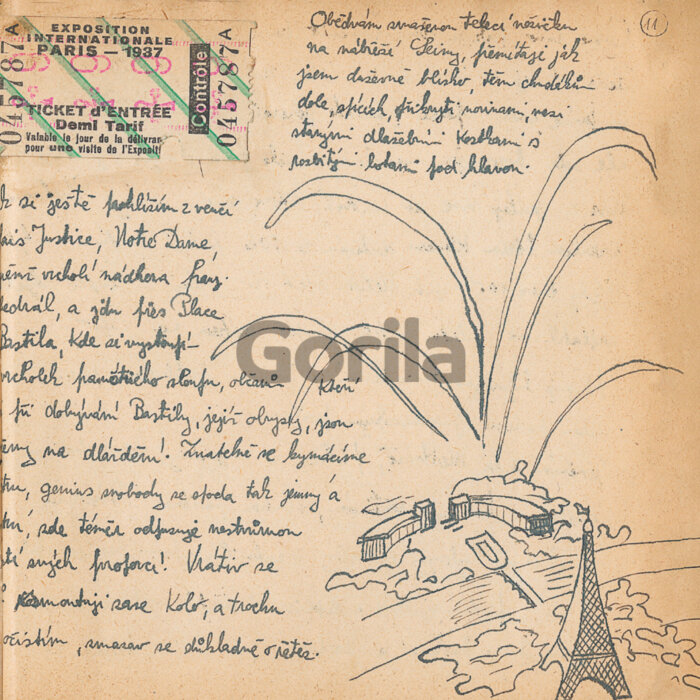 EXPOSITION
INTERNATIONALE
PARIS - 1937
TICKET d'ENTRÉE
Demi Tarif
Valable le jour de la délivran
pour une visite de l'Expositi
045787A
Contrôle
045787A
11
Obědvám smaženou telecí nožičku
na nábřeží Seiny, přemítaje jak
jsem duševně blízko, těm chudákům
dole, spících, přikrytí novinami, mezi
starými dlažebními kostkami s
rozbitými botami pod hlavou.
k si ještě prohlížím zvenčí
ais Justice, Notre Dame,
vrcholí nádhera franz.
edrál, a jdu přes Place
Bastila, kde si vystoupí
vrcholek památného sloupu, občanů kteří
při dobývání Bastilly, jejíž obrysy, jsou
na dláždění. Znatelně se kymácíme
tru, genius svobody se zpoda tak jemný a
zde téměř odpuzuje nestrůmou
stí svých proporcí! Vrátiv se
rozmontuji zase Kolo, a trochu
očistím, smazav se důkladně o řetěz.
Gorila